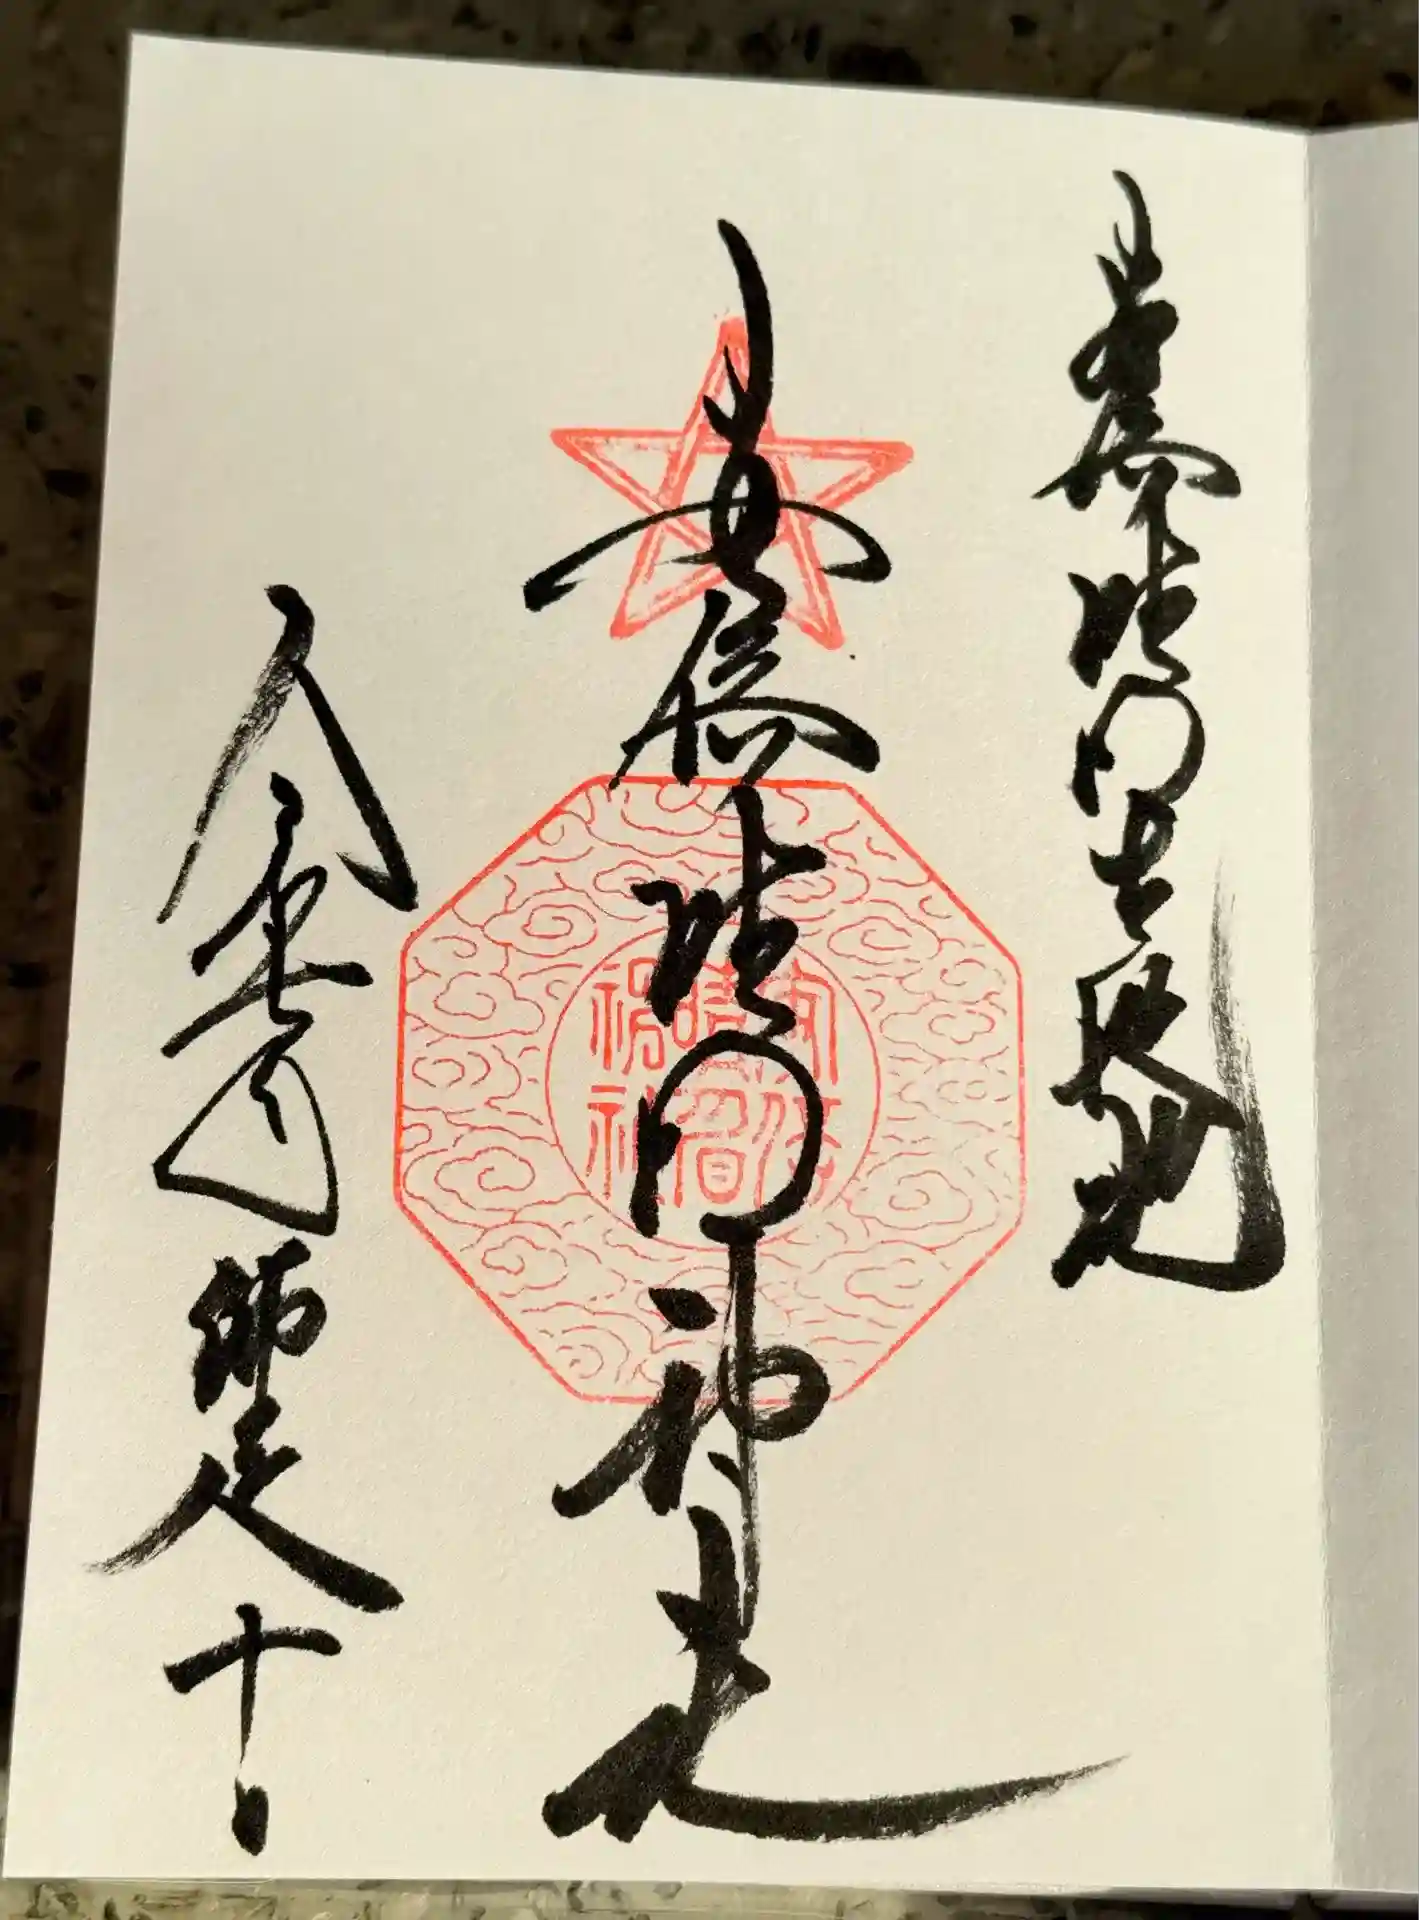 安倍晴明生誕地
安倍晴明神社
安倍
晴明
神社
令和七年師走十日